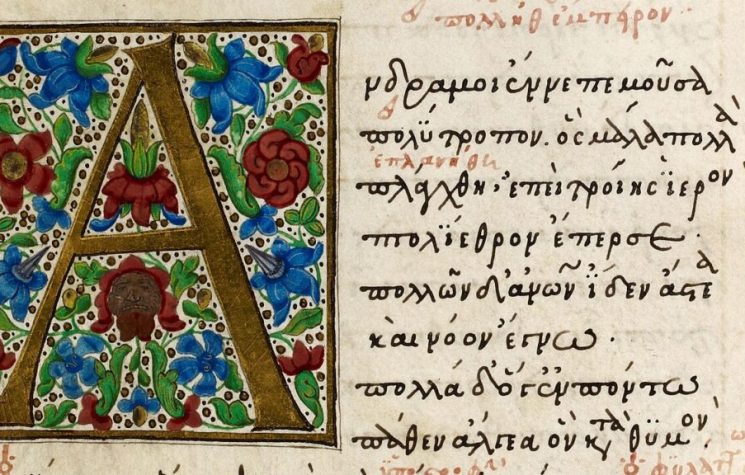 Α
νδρα μοι ἔννεπε μοῦσα
πολύτροπον. ὃς μάλα πολλὰ
ἐπλανήθη
πλάγχθη, ἐπεὶ τροίης ἱερὸν
πτολίεθρον ἔπερσε.
πολλῶν δ' ἀνῶν ἴδεν ἄστεα
καὶ νόον ἔγνω.
πολλὰ δ' ὅγ' ἐν πόντω
πάθεν ἄλγεα ὃν κτὰ θυμὸν,